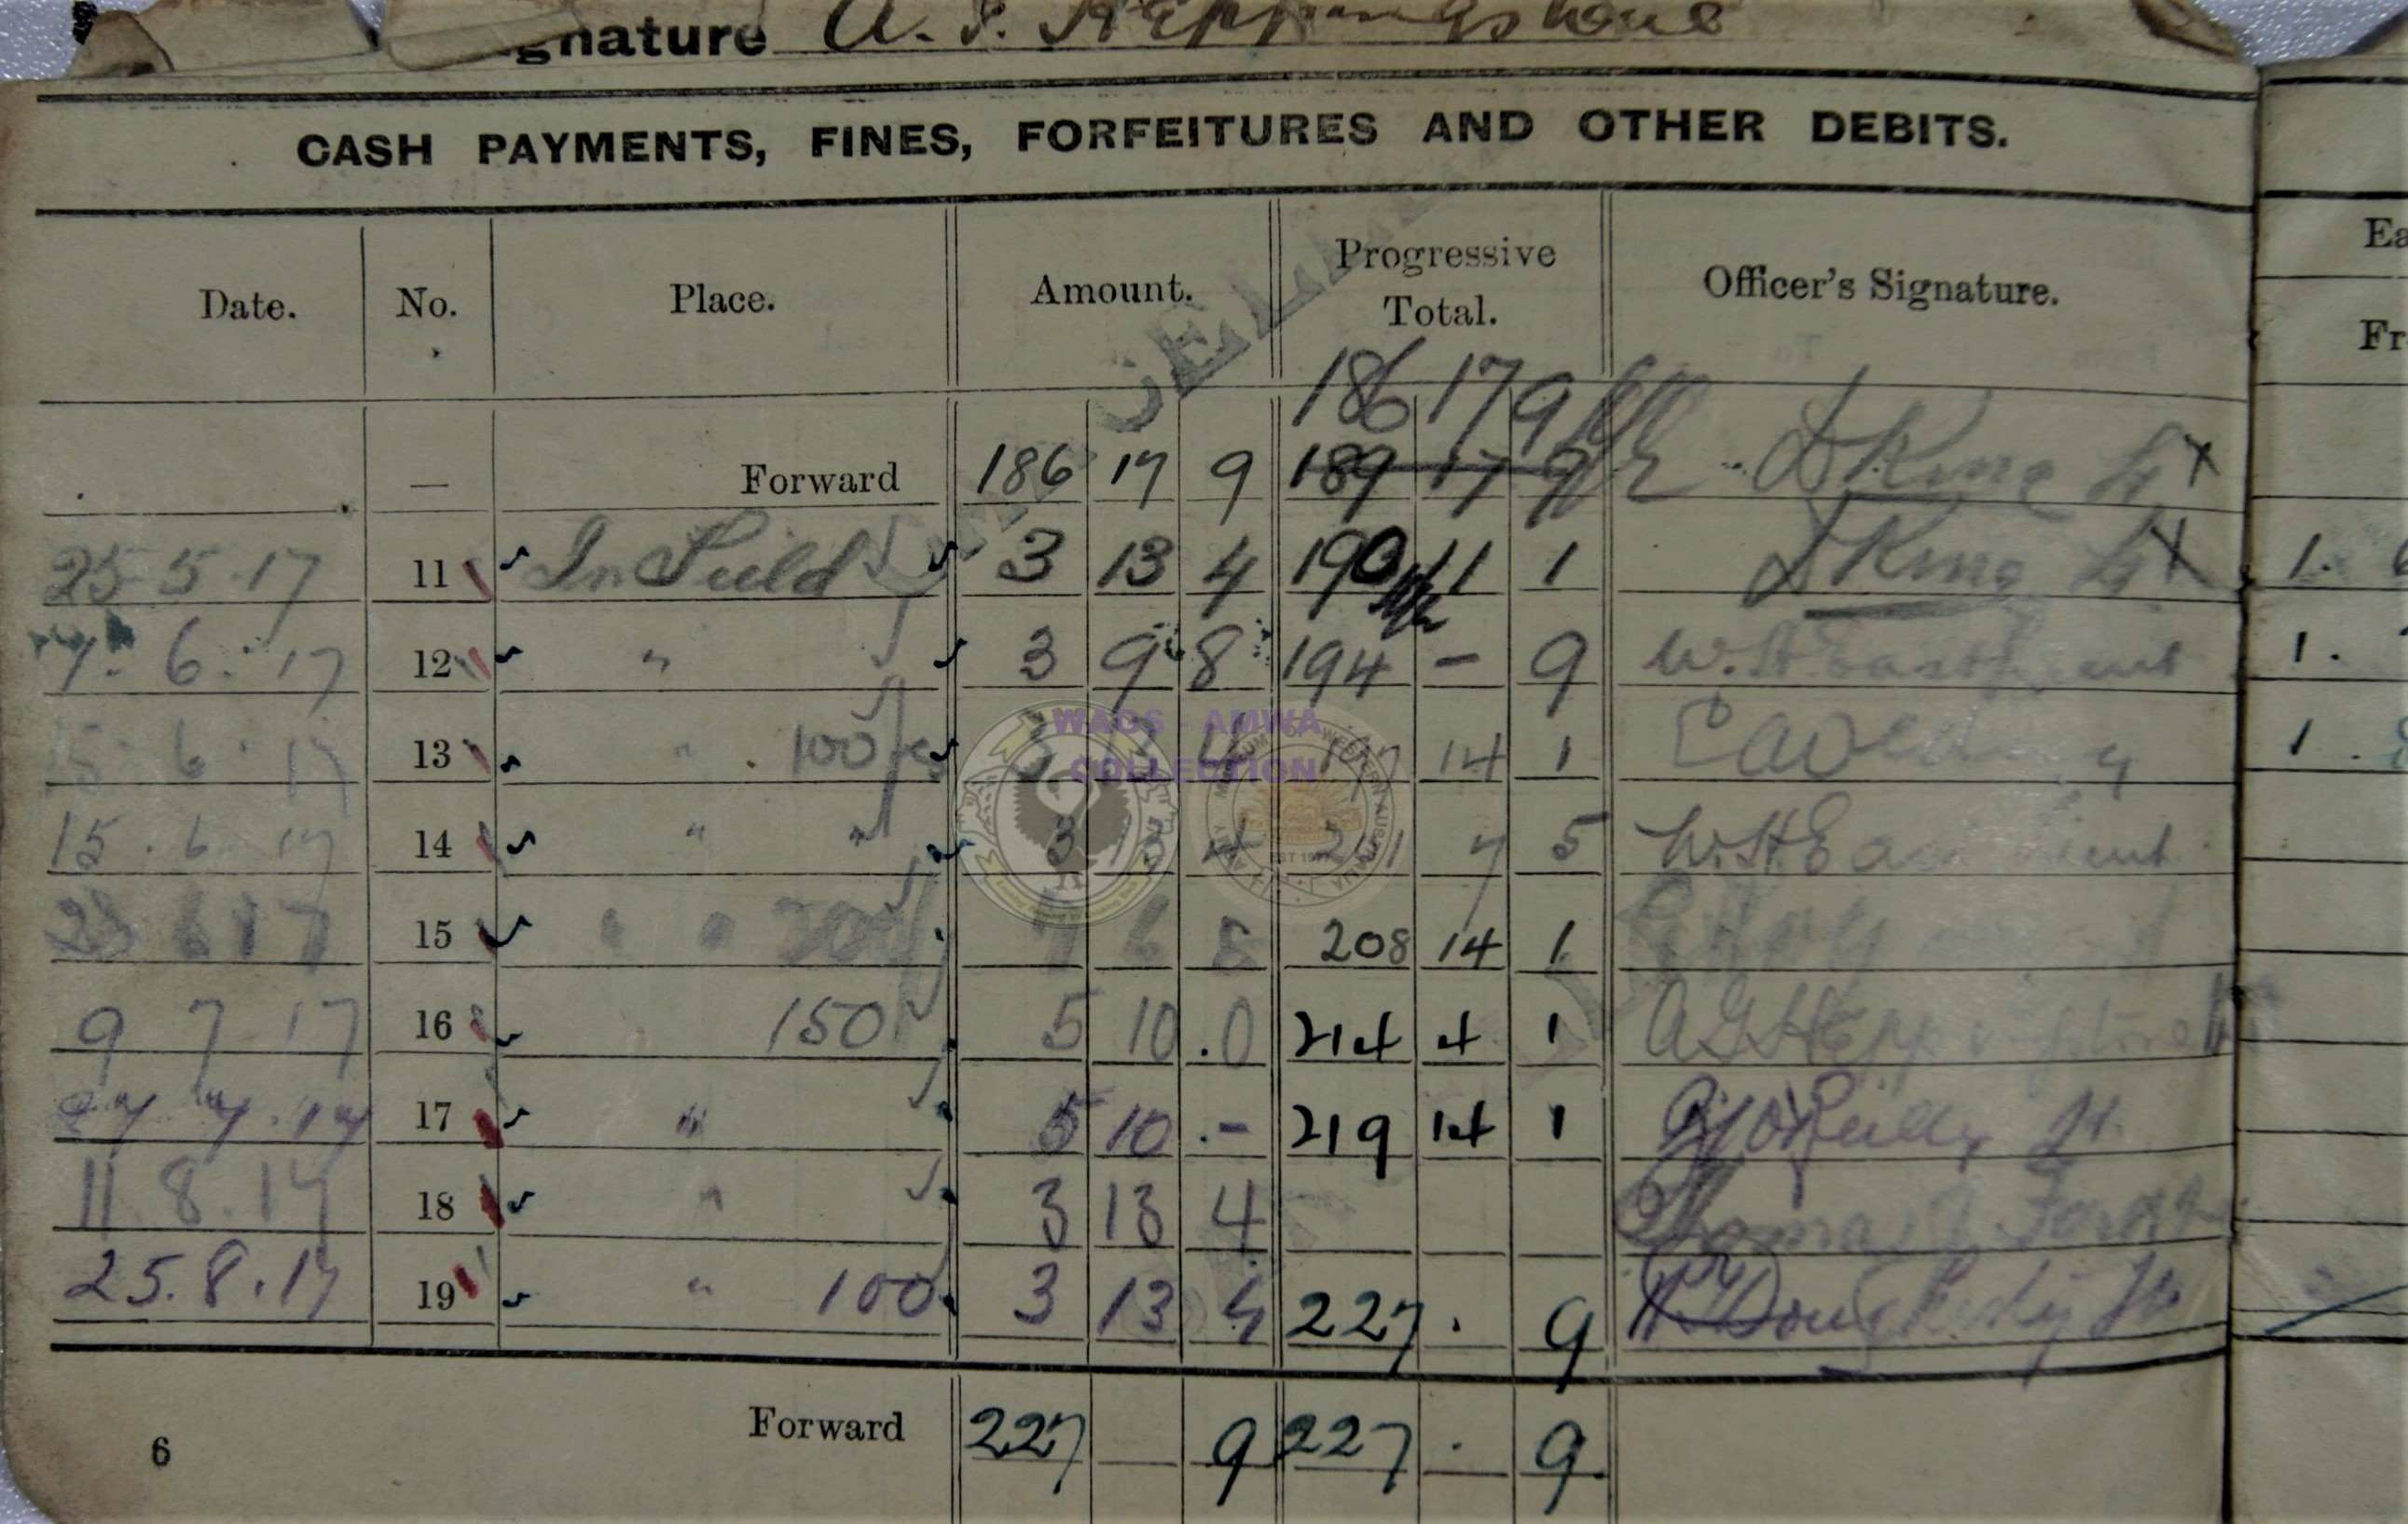 gnature A. G. Heppingstone
CASH PAYMENTS, FINES, FORFEITURES AND OTHER DEBITS.
Date. No. Place. Amount. Progressive Total. Officer's Signature.
186 17 9
— Forward 186 17 9 189 17 9 King Lt X
25 5 17 11 In Field 3 13 4 190 11 1 King Lt X
7. 6. 17 12 " 3 9 8 194 - 9 W. H. Eastment
15 6 17 13 " 100 3 13 4 197 14 1
15. 6 17 14 " " 3 13 4 201 7 5 W. H. Eastment
23 6 17 15 " " 200 7 6 8 208 14 1
9 7 17 16 150 5 10.0 214 4 1 A G Heppingstone Lt
27 7.17 17 " 5 10.- 219 14 1 O'Reilly Lt.
11 8.17 18 " 3 13 4 Thomas
25.8.17 19 " 100 3 13 4 227. 9 Dougherty Lt
Forward 227 9 227. 9
6
Ea
Fr
1.
1.
1.
WAGS - AMWA
COLLECTION